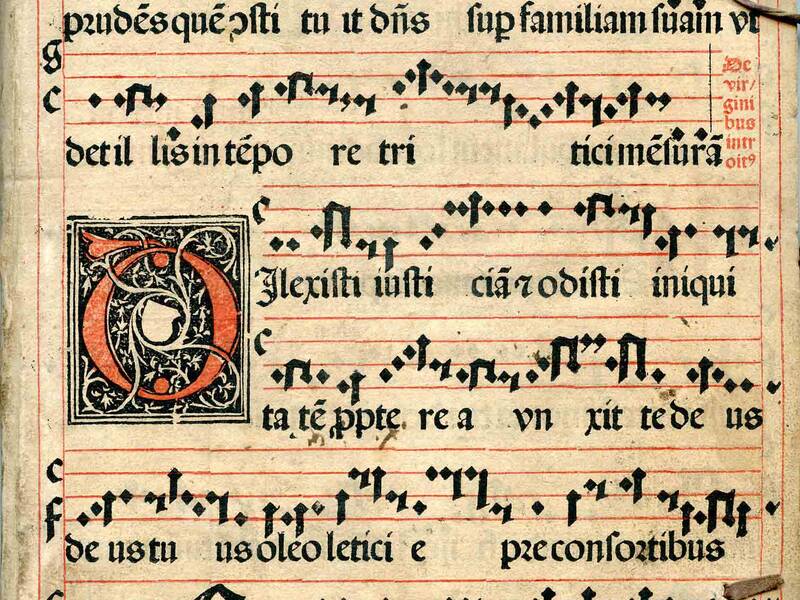 prudēs quē ꝯsti tu it dn̄s sup familiam suam vt
g
c
det il lis in tēpo re tri tici mēsurā
De
vir/
gini
bus
intr
oitꝰ
c
D Ilexisti iusti ciā ⁊ odisti iniqui
c
ta tē ꝓpte re a vn xit te de us
c
f
de us tu us oleo leticie pre consortibus